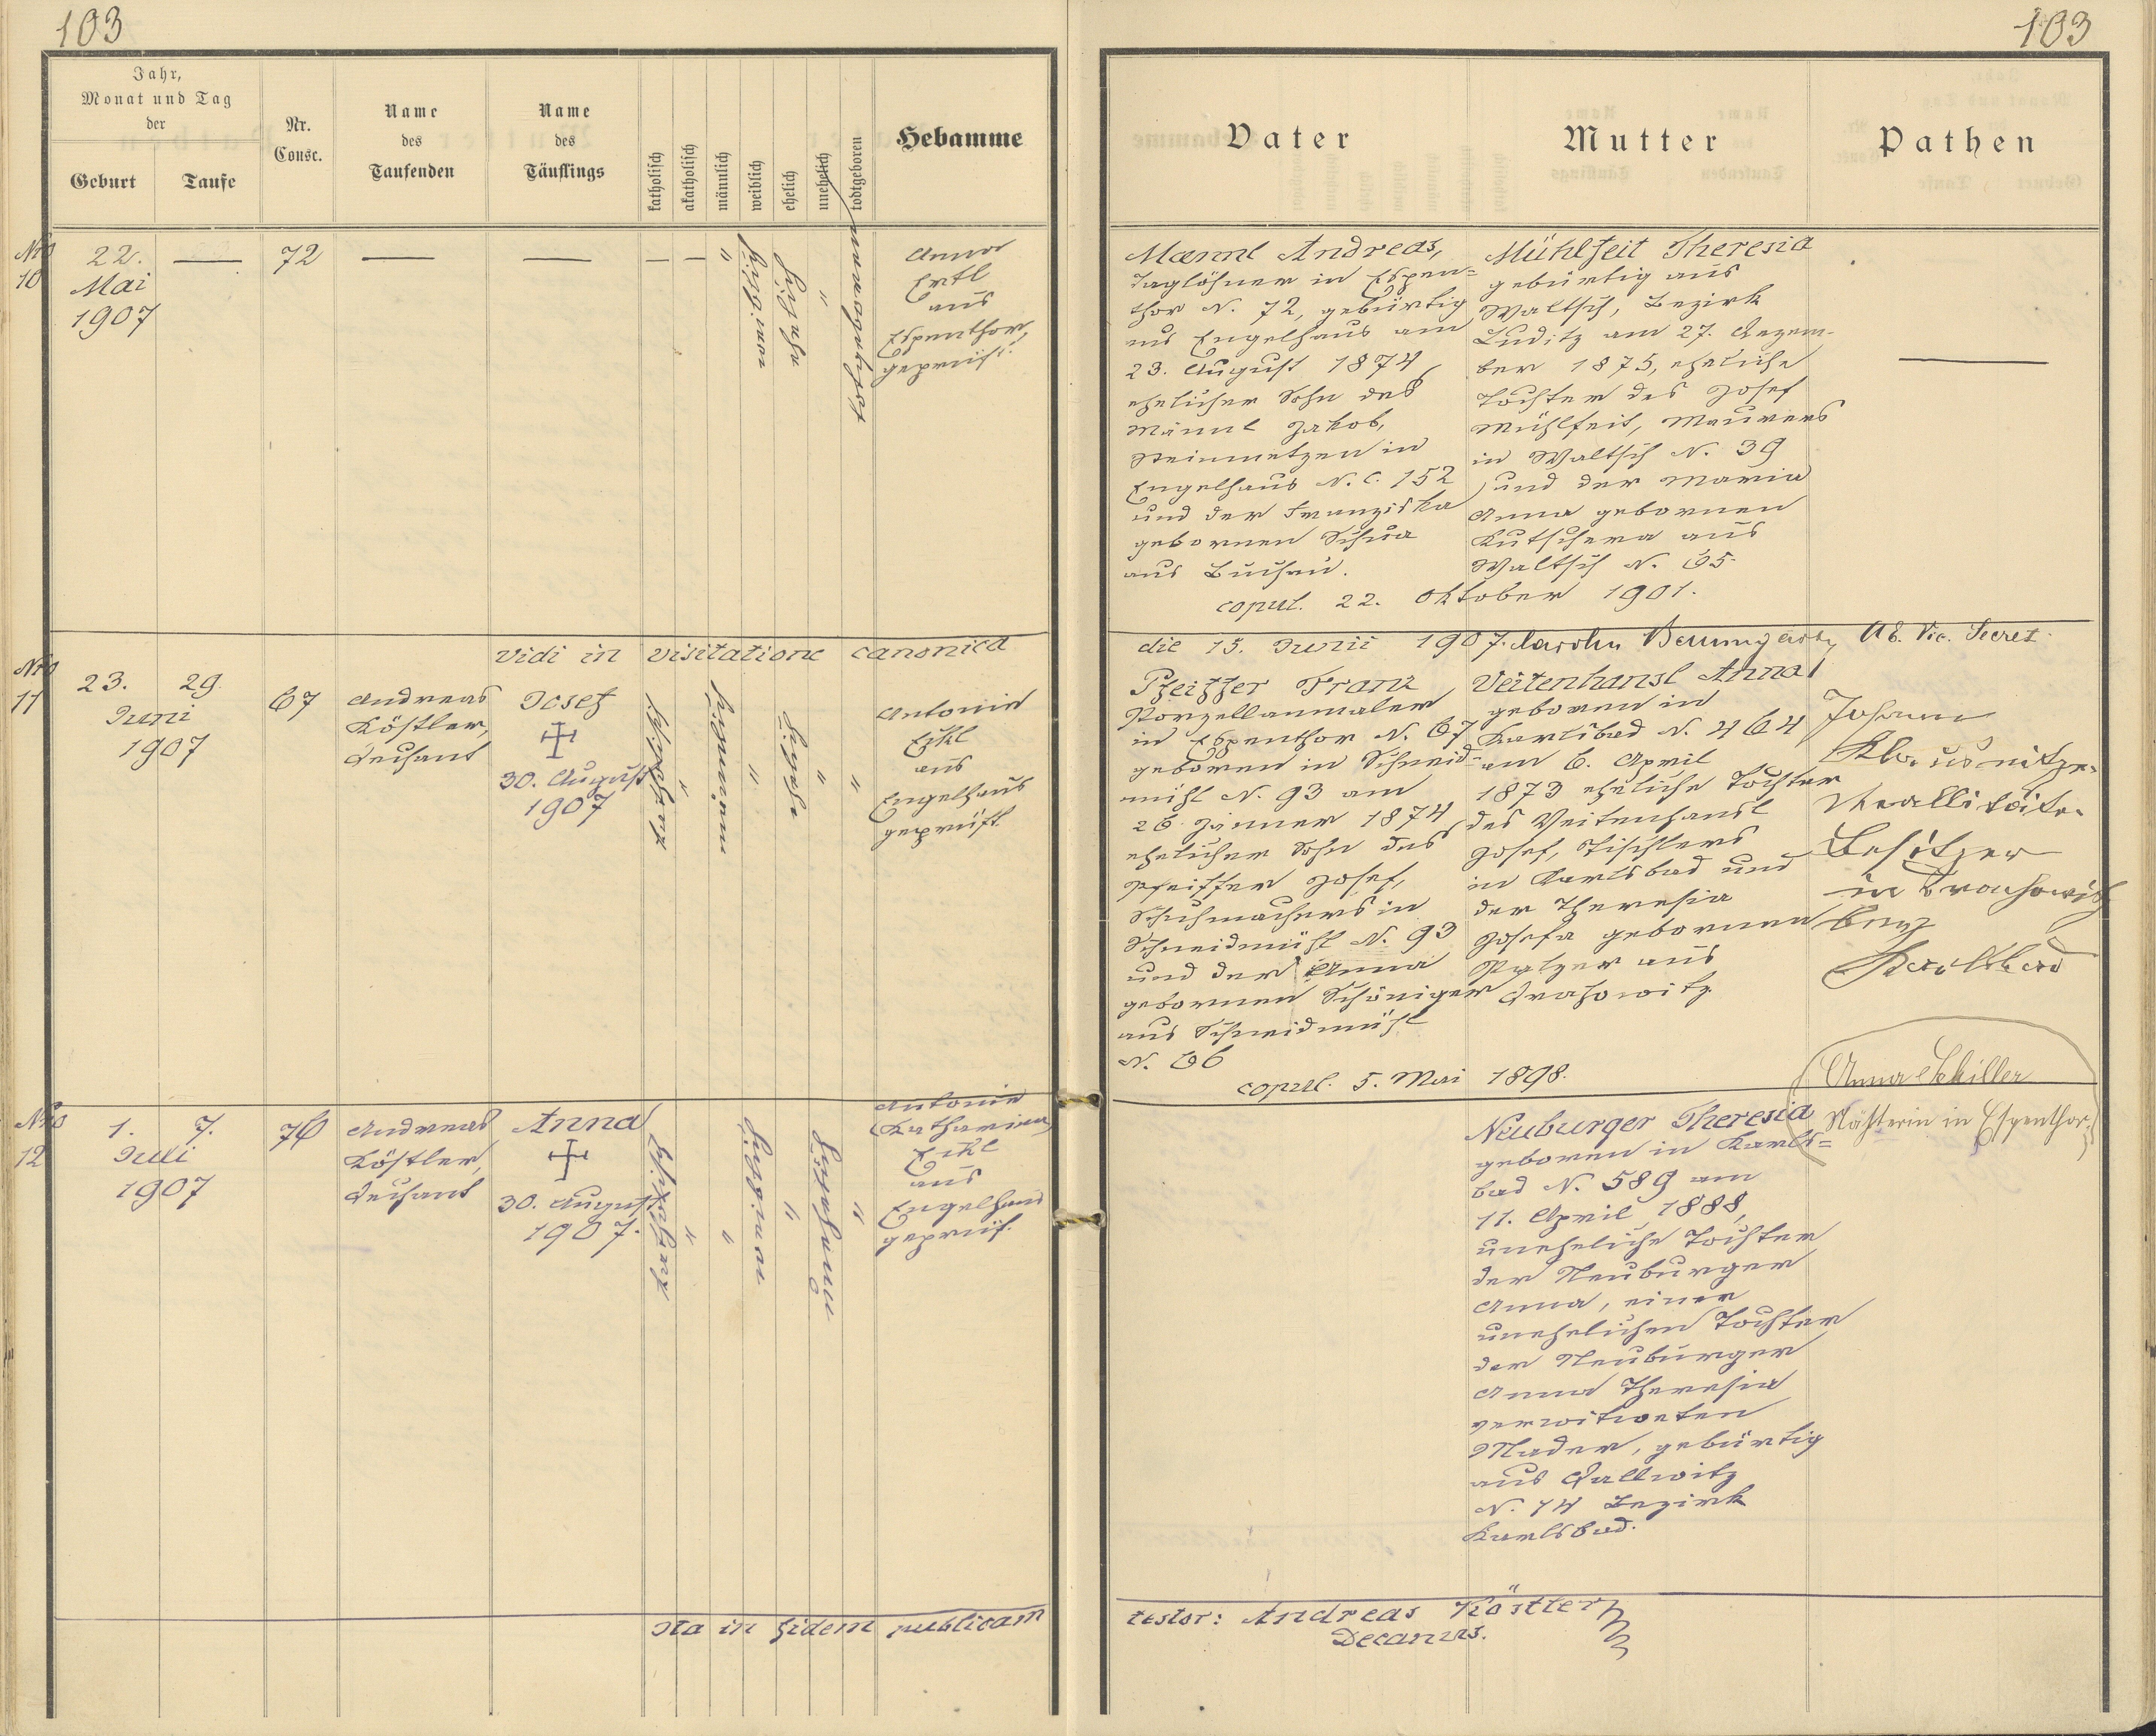 103
103
Jahr,
Monat und Tag
der
Geburt
Taufe
Nr.
Consc.
Name
des
Taufenden
Name
des
Täuflings
katholisch
akatholisch
männlich
weiblich
ehelich
unehelich
todtgeboren
Hebamme
Vater
Mutter
Pathen
Nro
10
22.
Mai
1907
—
72
—
—
— — "
weiblich
ehelich
"
todtgeboren
Anna
Ertl
aus
Espenthor,
geprüft.
Mannl Andreas,
Taglöhner in Espen=
thor N. 72, gebürtig
aus Engelhaus am
23. August 1874
ehelicher Sohn des
Männl Jakob,
Steinmetzen in
Engelhaus N. C. 152
und der Franziska
gebornen Schua
aus Buchau.
Mühlfeit Theresia
gebürtig aus
Waltsch, Bezirk
Luditz am 27. Dezem-
ber 1875, eheliche
Tochter des Josef
Mühlfeit, Maurers
in Waltsch N. 39
und der Maria
Anna gebornen
Kutschera aus
Waltsch N. 65.
—
copul. 22. Oktober 1901.
Vidi in visitatione canonica
die 15. Junii 1907. Vic. Secret.
Nro
11
23. 29.
Juni
1907
67
Andreas
Köstler,
Dechant
Josef
30. August
1907
katholisch
"
männlich
"
ehelich
"
"
Antonia
Eikl
aus
Engelhaus
geprüft.
Pfeiffer Franz
Porzellanmaler
in Espenthor N. 67
geboren in Schneid-
mühl N. 93 am
26. Jänner 1874
ehelicher Sohn des
Pfeiffer Josef,
Schuhmachers in
Schneidmühl N. 93
und der Anna
gebornen Schöniger
aus Schneidmühl
N. 66
Veitenhansl Anna
geboren in
Karlsbad N. 464
am 6. April
1873 eheliche Tochter
des Veitenhansl
Josef, Tischlers
in Karlsbad und
der Theresia
Josefa gebornen
aus
Drahowitz.
Johann
Klausnitzer
Realitäten
Besitzer
in Drahowitz
bey
Karlsbad
copul. 5. Mai 1898.
Nro
12
1. 7.
Juli
1907
76
Andreas
Köstler,
Dechant
Anna
30. August
1907.
katholisch
"
"
weiblich
"
unehelich
"
Antonia
(Katharina)
Eikl
aus
Engelhaus
geprüft.
Neuburger Theresia
geboren in Karls=
bad N. 589 am
11. April 1888,
uneheliche Tochter
der Neuburger
Anna, einer
unehelichen Tochter
der Neuburger
Anna Theresia
verwitweten
Mader, gebürtig
aus Dallwitz
N. 14 Bezirk
Karlsbad.
Anna Schiller
Nähterin in Espenthor.
Ita in fidem publicam
testor: Andreas Köstler
Decanus.